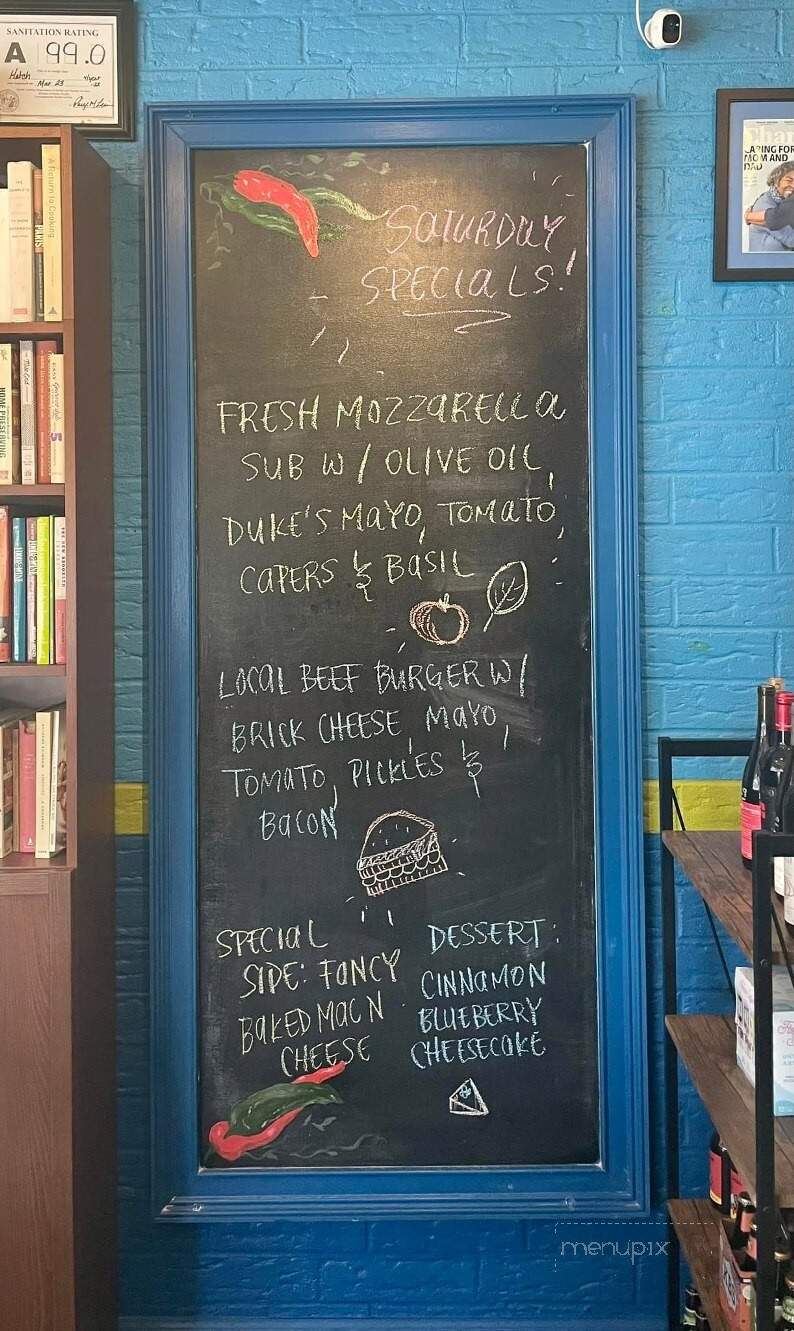 SANITATION RATING
A 99.0
Hatch
Mar 23
A Return to Cooking
PARIS
HOME PRESERVING
5
CARING FOR
MOM AND
DAD
SATURDAY
SPECIALS!
FRESH MOZZARELLA
SUB W/ OLIVE OIL,
DUKE'S MAYO, TOMATO,
CAPERS & BASIL
LOCAL BEEF BURGER W/
BRICK CHEESE, MAYO,
TOMATO, PICKLES &
BACON
SPECIAL
SIDE: FANCY
BAKED MAC N
CHEESE
DESSERT:
CINNAMON
BLUEBERRY
CHEESECAKE
menupix